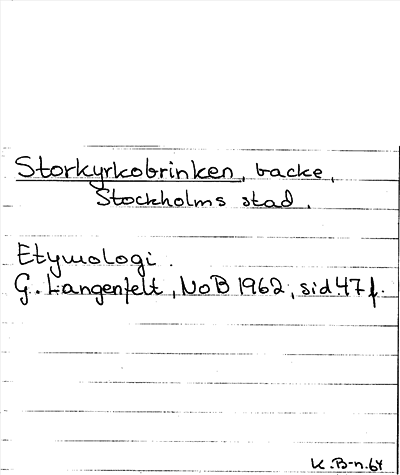 Storkyrkobrinken, backe,
Stockholms stad.
Etymologi.
G. Langenfelt, NoB 1962, sid 47 f.
K.B-n.64